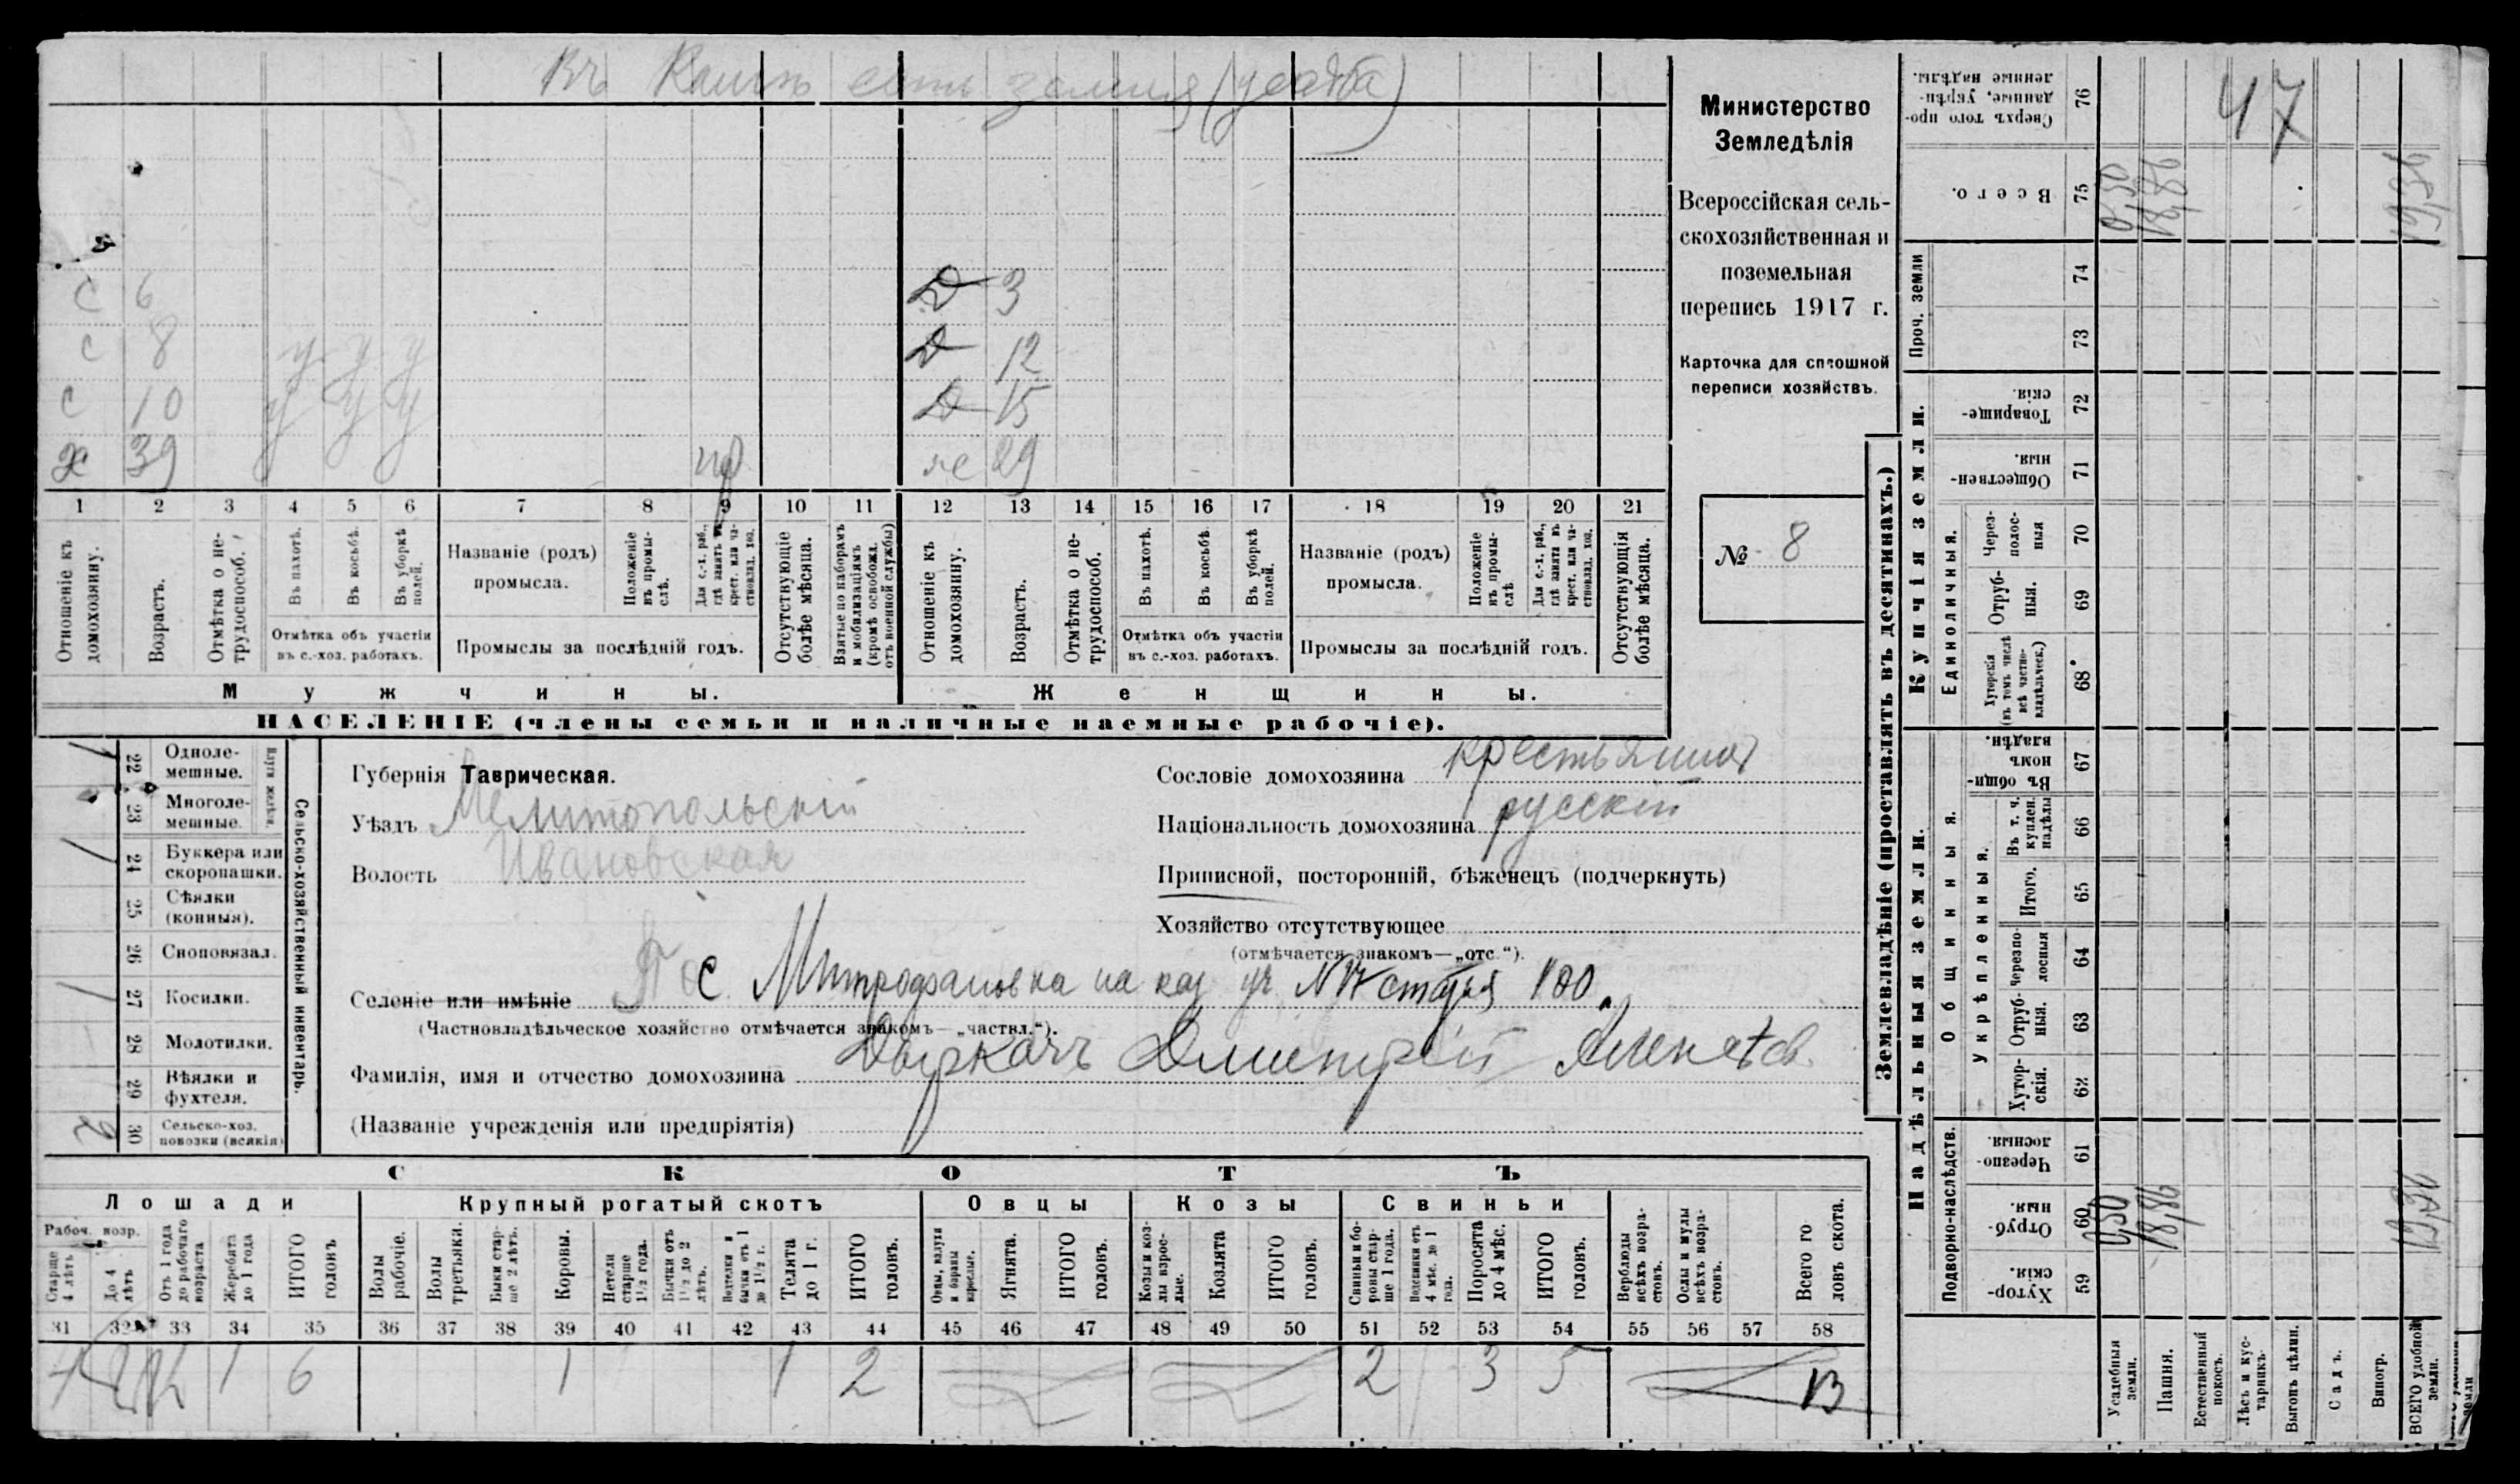 Въ
земля (усадба)
47
Министерство
Земледѣлія
Всероссійская сель-
скохозяйственная и
поземельная
перепись 1917 г.
Карточка для сплошной
переписи хозяйствъ.
№ 8
с 6
с 8 у у у
с 10 у у у
х 39
Д 3
Д 12
Д 15
же 29
1 2 3 4 5 6 7 8 9 10 11 12 13 14 15 16 17 18 19 20 21
Отношеніе къ домохозяину.
Возрастъ.
Отмѣтка о не-трудоспособ.
Въ пахотѣ.
Въ косьбѣ.
Въ уборкѣ полей.
Отмѣтка объ участіи
въ с.-хоз. работахъ.
Названіе (родъ)
промысла.
Положеніе въ промы-слѣ.
Для с.-х. раб., гдѣ занятъ въ крест. или ча-стновлад. хоз.
Промыслы за послѣдній годъ.
Отсутствующіе болѣе мѣсяца.
Взятые по наборамъ и мобилизаціямъ (кромѣ освобожд. отъ военной службы)
Отношеніе къ домохозяину.
Возрастъ.
Отмѣтка о не-трудоспособ.
Въ пахотѣ.
Въ косьбѣ.
Въ уборкѣ полей.
Отмѣтка объ участіи
въ с.-хоз. работахъ.
Названіе (родъ)
промысла.
Положеніе въ промы-слѣ.
Для с.-х. раб., гдѣ занята въ крест. или ча-стновлад. хоз.
Промыслы за послѣдній годъ.
Отсутствующія болѣе мѣсяца.
Мужчины.
Женщины.
НАСЕЛЕНІЕ (члены семьи и наличные наемные рабочіе).
22 Одноле-мешные.
23 Многоле-мешные.
24 Буккера или скоропашки.
25 Сѣялки (конныя).
26 Сноповязал.
27 Косилки.
28 Молотилки.
29 Вѣялки и фухтеля.
30 Сельско-хоз. повозки (всякія) 2
Сельско-хозяйственный инвентарь.
Губернія Таврическая.
Уѣздъ Мелитопольскій
Волость Ивановская
Сословіе домохозяина крестьянин
Національность домохозяина русскій
Приписной, посторонній, бѣженецъ (подчеркнуть)
Хозяйство отсутствующее
(отмѣчается знакомъ—„отс“).
Селеніе или имѣніе с. Митрофановка на каз уч
(Частновладѣльческое хозяйство отмѣчается знакомъ—„частвл.“).
Фамилія, имя и отчество домохозяина Дыркачъ Дмитрій
(Названіе учрежденія или предпріятія)
СКОТЪ
Лошади
Крупный рогатый скотъ
Овцы
Козы
Свиньи
Рабоч. возр.
Старше 4 лѣтъ
До 4 лѣтъ
Отъ 1 года до рабочаго возраста
Жеребята до 1 года
ИТОГО головъ
Волы рабочіе.
Волы третьяки.
Быки стар-ше 2 лѣтъ.
Коровы.
Нетели старше 1½ года.
Бычки отъ 1½ до 2 лѣтъ.
Подтелки и бычки отъ 1 до 1½ г.
Телята до 1 г.
ИТОГО головъ.
Овцы, валухи и бараны взрослые.
Ягнята.
ИТОГО головъ.
Козы и коз-лы взрос-лые.
Козлята
ИТОГО головъ.
Свиньи и бо-ровы стар-ше 1 года.
Подсвинки отъ 4 мѣс. до 1 года.
Поросята до 4 мѣс.
ИТОГО головъ.
Верблюды всѣхъ возра-стовъ.
Ослы и мулы всѣхъ возра-стовъ.
Всего го-ловъ скота.
31 32 33 34 35 36 37 38 39 40 41 42 43 44 45 46 47 48 49 50 51 52 53 54 55 56 57 58
1 6 1 1 2 2 3 5 13
Землевладѣніе (проставлять въ десятинахъ.)
Надѣльныя земли.
Купчія земли.
Проч. земли
Подворно-наслѣдств.
Общинныя.
Укрѣпленныя.
Единоличныя.
76 Сверхъ того про-данные, укрѣп-ленные надѣлы.
75 Всего. 0,50 18,86
74
73
72 Товарище-скія
71 Обществен-ныя.
70 Через-полос-ныя
69 Отруб-ныя.
68 Хуторскія (въ томъ числѣ всѣ частно-владѣльческ.)
67 Въ общин-номъ владѣн.
66 Въ т. ч. куплен. надѣлы
65 Итого.
64 Черезпо-лосныя
63 Отруб-ныя.
62 Хутор-скія.
61 Черезпо-лосныя.
60 Отруб-ныя. 0,50 18,86
59 Хутор-скія.
Усадебныя земли.
Пашня.
Естественный покосъ.
Лѣсъ и кус-тарникъ.
Выгонъ цѣлин.
Садъ.
Виногр.
ВСЕГО удобной земли.